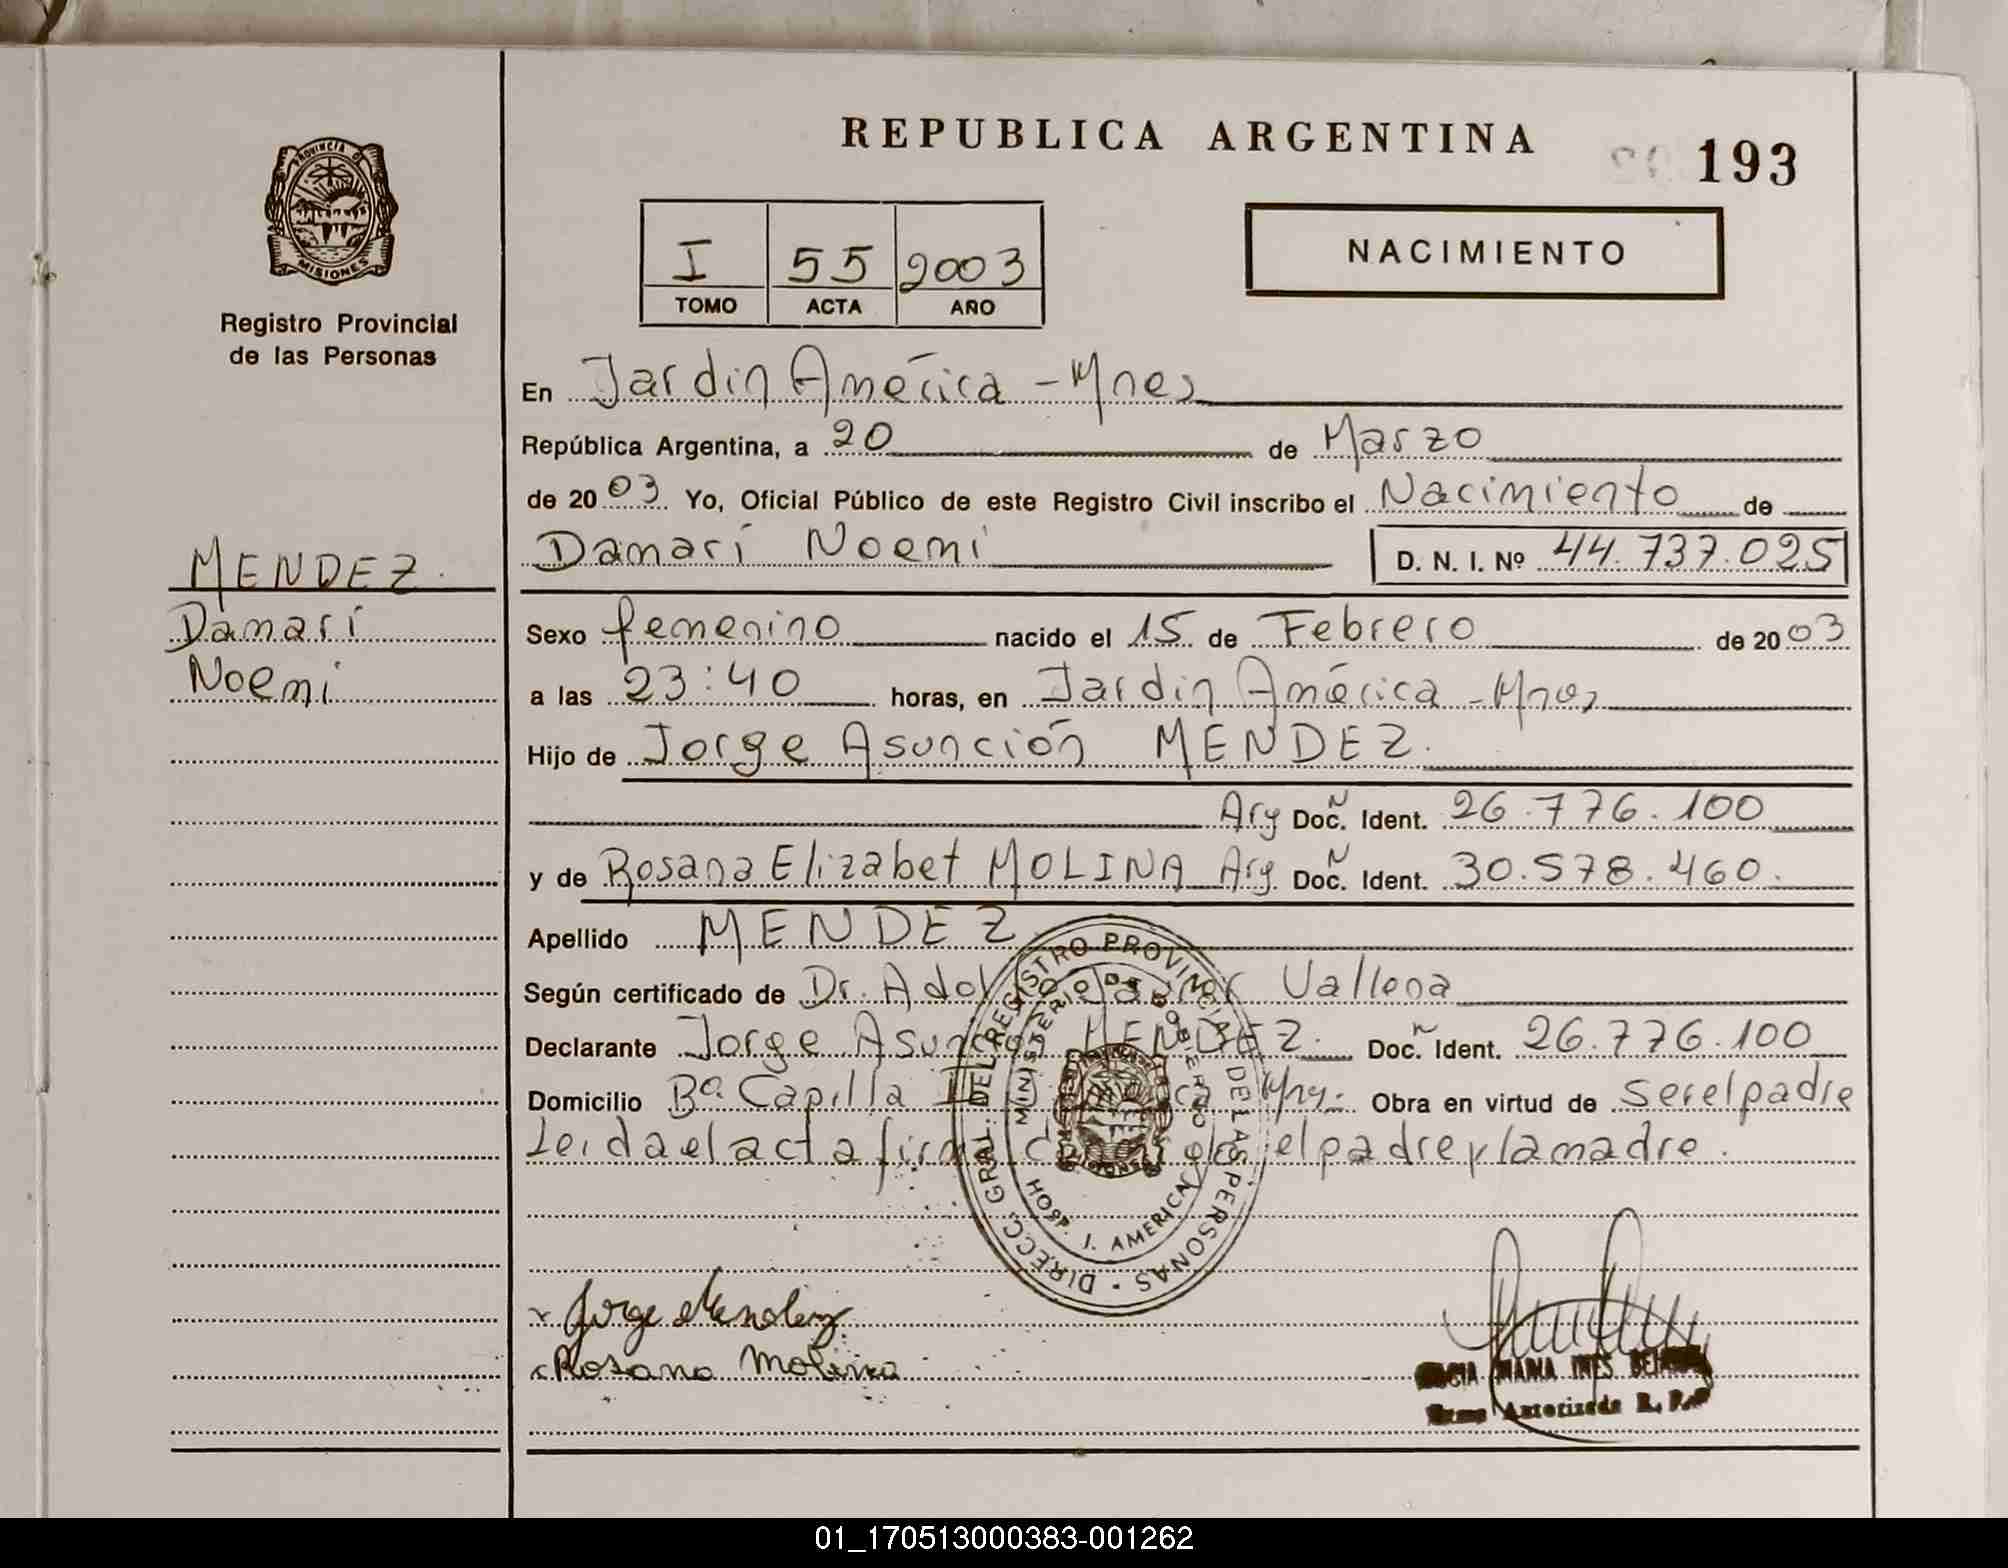 REPUBLICA ARGENTINA
193
PROVINCIA D
MISIONES
Registro Provincial
de las Personas
I 55 2003
TOMO ACTA AÑO
NACIMIENTO
En Jardin América - Mnes
República Argentina, a 20 de Marzo
de 2003 Yo, Oficial Público de este Registro Civil inscribo el Nacimiento de
Damarí Noemi D. N. I. Nº 44.737.025
MENDEZ.
Damarí
Noemi
Sexo femenino nacido el 15 de Febrero de 2003
a las 23:40 horas, en Jardin América - Mnes
Hijo de Jorge Asunción MENDEZ.
Arg Doc. Ident. 26.776.100
y de Rosana Elizabet MOLINA Arg Doc. Ident. 30.578.460.
Apellido MENDEZ
Según certificado de Dr. Vallena
Declarante Jorge Asunción MENDEZ. Doc. Ident. 26.776.100
Domicilio Bº. Capilla Obra en virtud de ser el padre
Leida el acta el padre y la madre.
DIRECC. GRAL. DEL REGISTRO PROVINCIAL DE LAS PERSONAS
MINISTERIO DE GOBIERNO
HOSP. J. AMERICA
Jorge Mendez
Rosana Molina
MARIA INES
Firma Autorizada R. P.
01_170513000383-001262